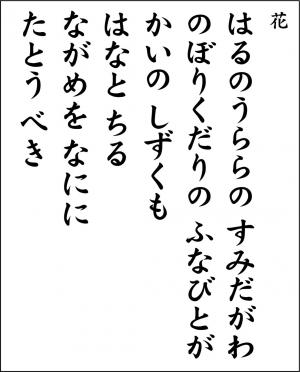 花
はるのうららの すみだがわ
のぼりくだりの ふなびとが
かいの しずくも
はなと ちる
ながめを なにに
たとう べき